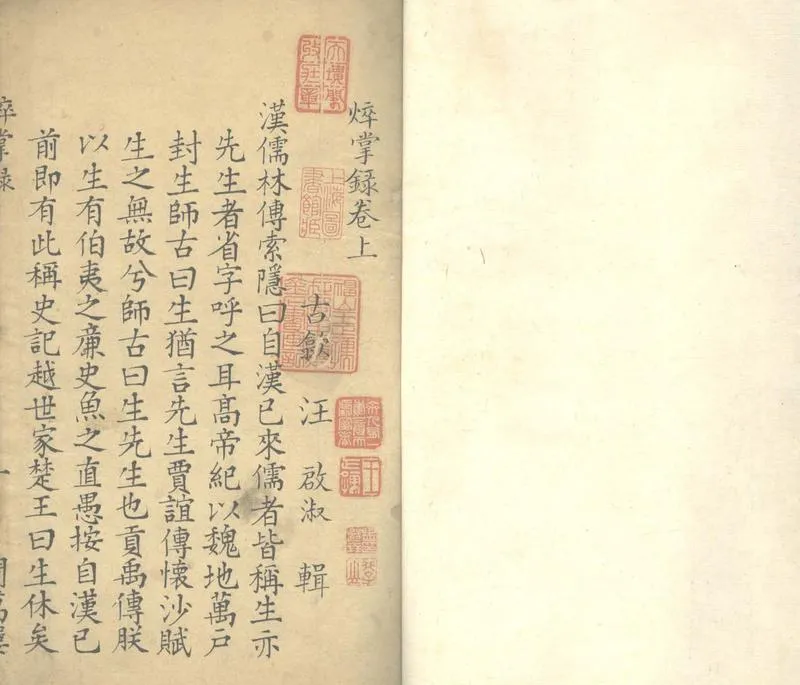 焠掌錄卷上
古歙 汪 啟淑 輯
漢儒林傳索隱曰自漢已來儒者皆稱生亦
先生者省字呼之耳髙帝紀以魏地萬戶
封生師古曰生猶言先生賈誼傳懷沙賦
生之無故兮師古曰生先生也貢禹傳朕
以生有伯夷之廉史魚之直愚按自漢已
前即有此稱史記越世家楚王曰生休矣
焠掌錄
一
上海圖書館藏